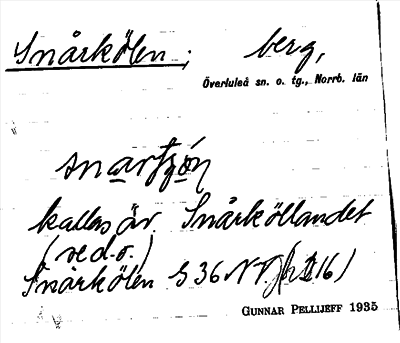 Snårkölen; berg,
Överluleå sn. o. tg., Norrb. län
kallas äv. Snårköllandet
(se d.o.)
Snårkölen S 36 NV
GUNNAR PELLIJEFF 1935